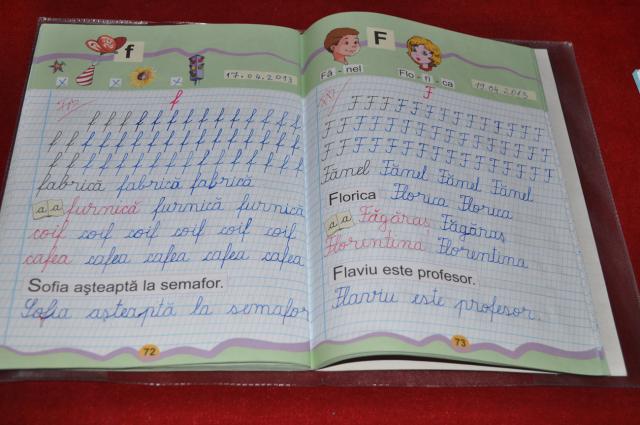 f
17.04.2013
f
f f f f f f f f f f f f f f f
f f f f f f f f f f f f f f f f
f f f f f f f f f f f f f f f f
fabrică fabrică fabrică
a a furnică furnică furnică
coif coif coif coif coif coif
cafea cafea cafea cafea cafea
Sofia aşteaptă la semafor.
Sofia aşteaptă la semafor
72
F
Fă - nel Flo - ri - ca
19.04.2013
F
F F F F F F F F F F F F F
F F F F F F F F F F F F F F
F F F F F F F F F F F F F F
Fănel Fănel Fănel Fănel
Florica Florica Florica
a a Făgăraş Făgăraş
Florentina Florentina
Flaviu este profesor.
Flaviu este profesor.
73